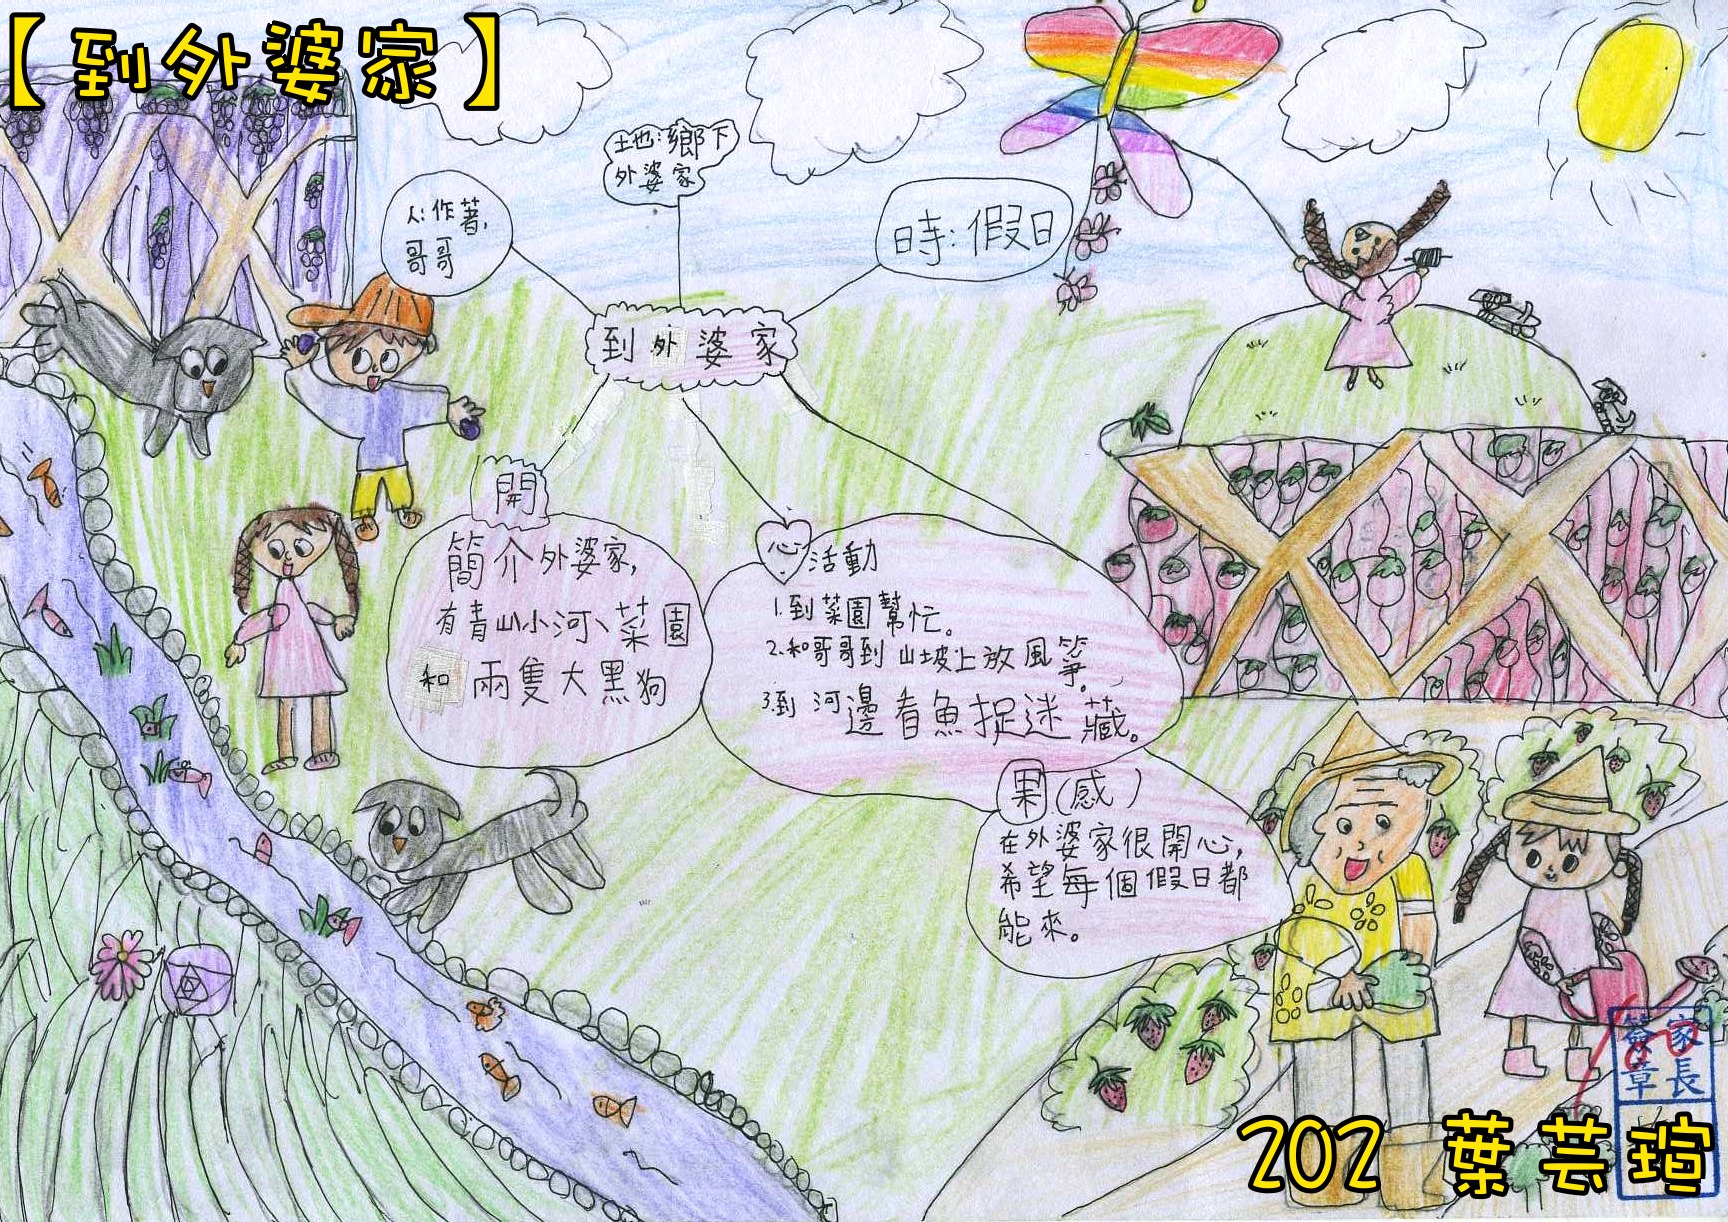 【到外婆家】
地:鄉下
外婆家
人:作者,
哥哥
時:假日
到外婆家
開
簡介外婆家,
有青山小河、菜園
和兩隻大黑狗
心 活動
1.到菜園幫忙。
2.和哥哥到山坡上放風箏。
3.到河邊看魚捉迷藏。
果(感)
在外婆家很開心,
希望每個假日都
能來。
家長
簽章
202 葉芸瑄